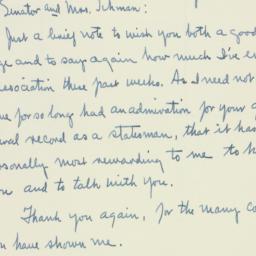 Senator and Mrs. Ickman:
Just a brief note to wish you both a good
ge and to say again how much I've en
ssociation these past weeks. As I need not
ve for so long had an admiration for your
ral record as a statesman, that it has
rsonally most rewarding to me to h
ou and to talk with you.
Thank you again, for the many co
u have shown me.